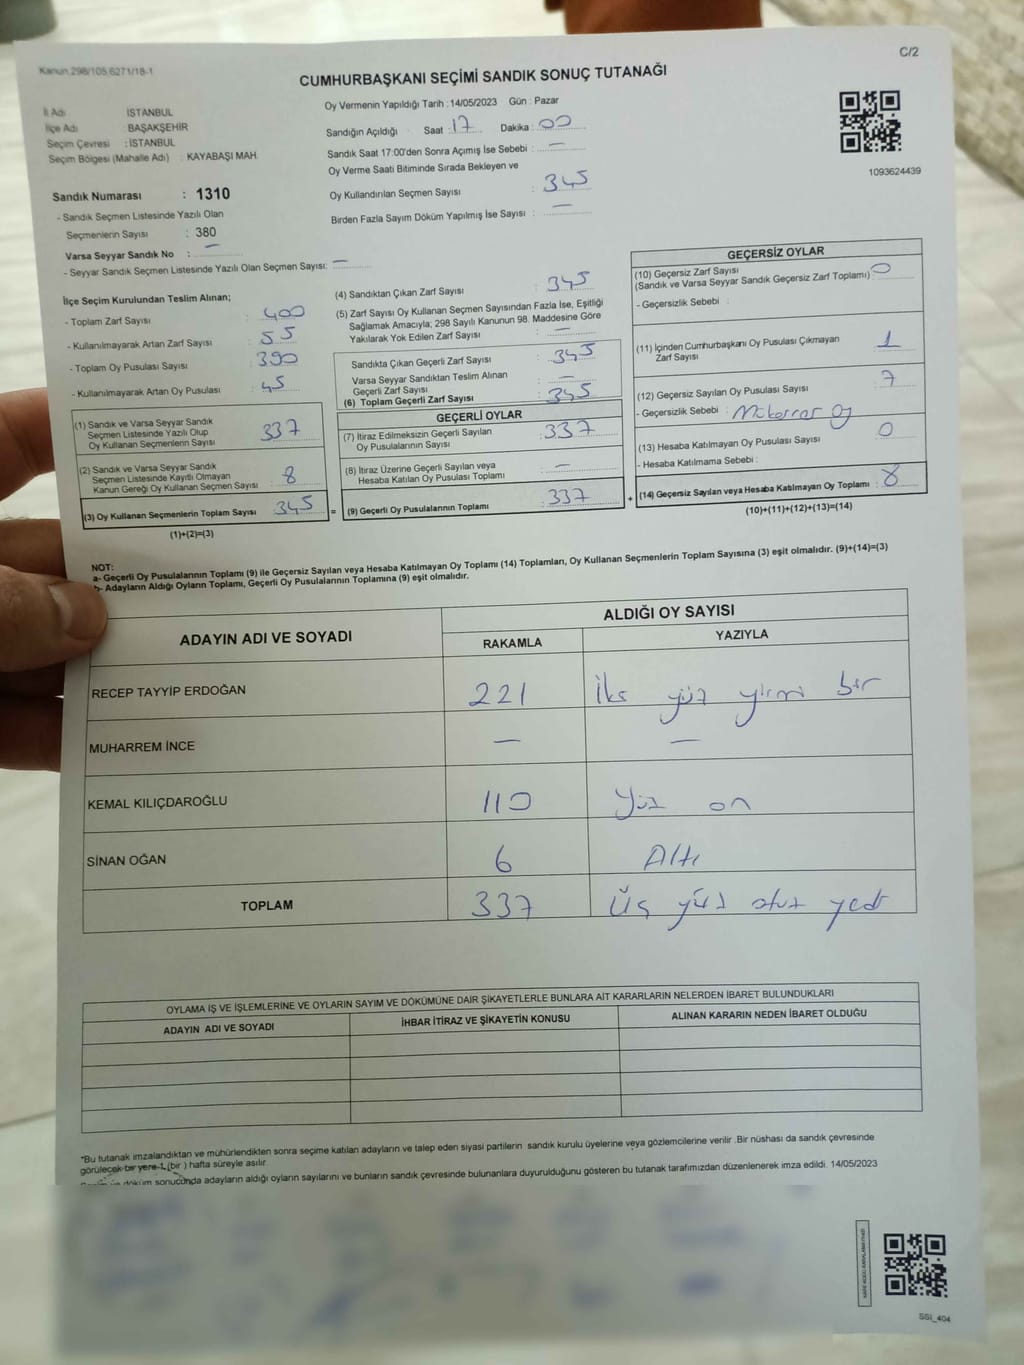 C/2
Kanun.298/105,6271/18-1
CUMHURBAŞKANI SEÇİMİ SANDIK SONUÇ TUTANAĞI
İl Adı İSTANBUL
İlçe Adı : BAŞAKŞEHİR
Seçim Çevresi : İSTANBUL
Seçim Bölgesi (Mahalle Adı) : KAYABAŞI MAH.
Sandık Numarası : 1310
- Sandık Seçmen Listesinde Yazılı Olan
Seçmenlerin Sayısı : 380
Varsa Seyyar Sandık No : —
- Seyyar Sandık Seçmen Listesinde Yazılı Olan Seçmen Sayısı: —
Oy Vermenin Yapıldığı Tarih : 14/05/2023 Gün : Pazar
Sandığın Açıldığı Saat : 17 Dakika : 00
Sandık Saat 17:00'den Sonra Açımış İse Sebebi : —
Oy Verme Saati Bitiminde Sırada Bekleyen ve
Oy Kullandırılan Seçmen Sayısı : 345
Birden Fazla Sayım Döküm Yapılmış İse Sayısı : —
1093624439
İlçe Seçim Kurulundan Teslim Alınan;
- Toplam Zarf Sayısı : 400
- Kullanılmayarak Artan Zarf Sayısı : 55
- Toplam Oy Pusulası Sayısı : 390
- Kullanılmayarak Artan Oy Pusulası : 45
(1) Sandık ve Varsa Seyyar Sandık
Seçmen Listesinde Yazılı Olup
Oy Kullanan Seçmenlerin Sayısı : 337
(2) Sandık ve Varsa Seyyar Sandık
Seçmen Listesinde Kayıtlı Olmayan
Kanun Gereği Oy Kullanan Seçmen Sayısı : 8
(3) Oy Kullanan Seçmenlerin Toplam Sayısı : 345
(1)+(2)=(3)
(4) Sandıktan Çıkan Zarf Sayısı : 345
(5) Zarf Sayısı Oy Kullanan Seçmen Sayısından Fazla İse, Eşitliği
Sağlamak Amacıyla; 298 Sayılı Kanunun 98. Maddesine Göre
Yakılarak Yok Edilen Zarf Sayısı : —
Sandıkta Çıkan Geçerli Zarf Sayısı : 345
Varsa Seyyar Sandıktan Teslim Alınan
Geçerli Zarf Sayısı : —
(6) Toplam Geçerli Zarf Sayısı : 345
GEÇERLİ OYLAR
(7) İtiraz Edilmeksizin Geçerli Sayılan
Oy Pusulalarının Sayısı : 337
(8) İtiraz Üzerine Geçerli Sayılan veya
Hesaba Katılan Oy Pusulası Toplamı : —
= (9) Geçerli Oy Pusulalarının Toplamı : 337 +
GEÇERSİZ OYLAR
(10) Geçersiz Zarf Sayısı
(Sandık ve Varsa Seyyar Sandık Geçersiz Zarf Toplamı) : 0
- Geçersizlik Sebebi :
(11) İçinden Cumhurbaşkanı Oy Pusulası Çıkmayan
Zarf Sayısı : 1
(12) Geçersiz Sayılan Oy Pusulası Sayısı : 7
- Geçersizlik Sebebi : Mükerrer oy
(13) Hesaba Katılmayan Oy Pusulası Sayısı : 0
- Hesaba Katılmama Sebebi :
(14) Geçersiz Sayılan veya Hesaba Katılmayan Oy Toplamı : 8
(10)+(11)+(12)+(13)=(14)
NOT:
a- Geçerli Oy Pusulalarının Toplamı (9) ile Geçersiz Sayılan veya Hesaba Katılmayan Oy Toplamı (14) Toplamları, Oy Kullanan Seçmenlerin Toplam Sayısına (3) eşit olmalıdır. (9)+(14)=(3)
b- Adayların Aldığı Oyların Toplamı, Geçerli Oy Pusulalarının Toplamına (9) eşit olmalıdır.
ADAYIN ADI VE SOYADI ALDIĞI OY SAYISI
RAKAMLA YAZIYLA
RECEP TAYYİP ERDOĞAN 221 İki yüz yirmi bir
MUHARREM İNCE — —
KEMAL KILIÇDAROĞLU 110 Yüz on
SİNAN OĞAN 6 Altı
TOPLAM 337 Üç yüz otuz yedi
OYLAMA İŞ VE İŞLEMLERİNE VE OYLARIN SAYIM VE DÖKÜMÜNE DAİR ŞİKAYETLERLE BUNLARA AİT KARARLARIN NELERDEN İBARET BULUNDUKLARI
ADAYIN ADI VE SOYADI İHBAR İTİRAZ VE ŞİKAYETİN KONUSU ALINAN KARARIN NEDEN İBARET OLDUĞU
*Bu tutanak imzalandıktan ve mühürlendikten sonra seçime katılan adayların ve talep eden siyasi partilerin sandık kurulu üyelerine veya gözlemcilerine verilir .Bir nüshası da sandık çevresinde
görülecek bir yere 1 (bir ) hafta süreyle asılır
döküm sonucunda adayların aldığı oyların sayılarını ve bunların sandık çevresinde bulunanlara duyurulduğunu gösteren bu tutanak tarafımızdan düzenlenerek imza edildi. 14/05/2023
SSI_404